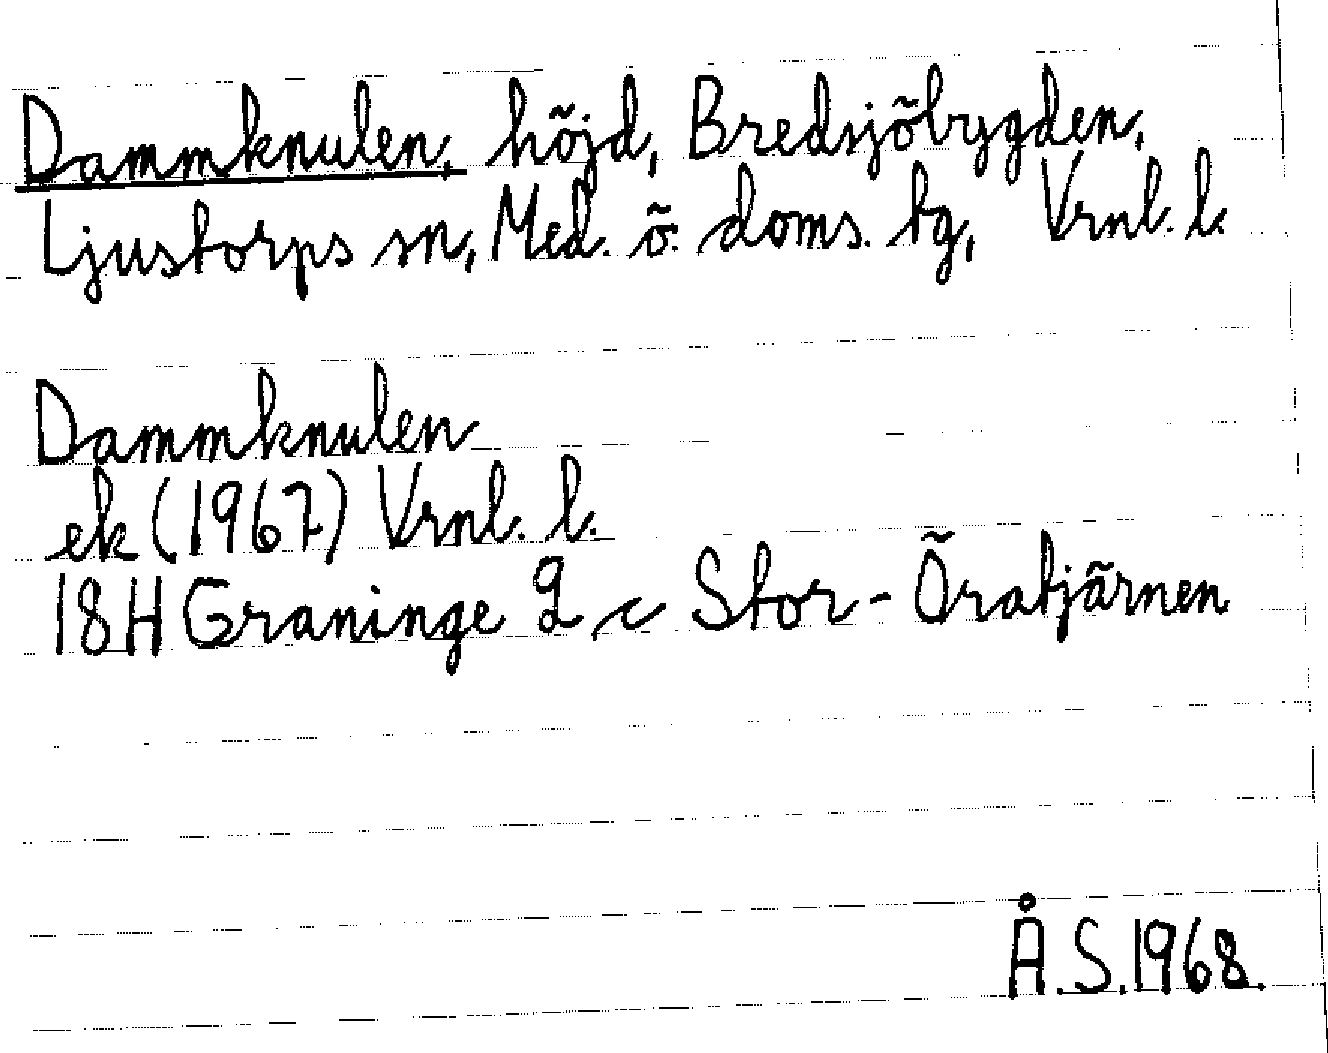 Dammknulen, höjd, Bredsjöbygden,
Ljustorps sn, Med. ö. doms. tg, Vrnl. l.
Dammknulen
ek (1967) Vrnl. l.
18H Graninge 2 c Stor-Öratjärnen
Å.S.1968.